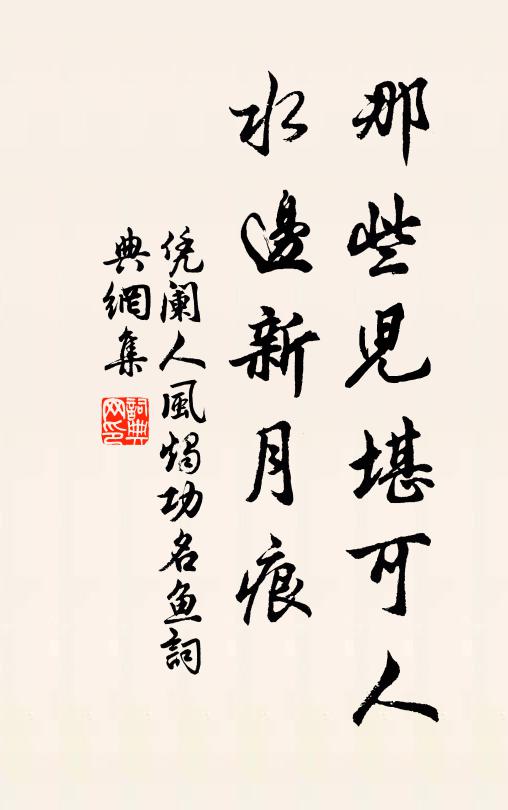 那些兒堪可人
水邊新月痕
凭闌人風燭功名魚詞
典網集
詞典
网印